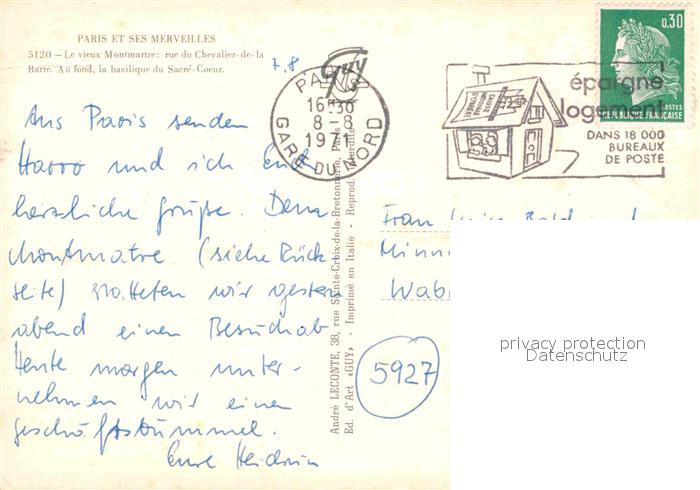 PARIS ET SES MERVEILLES
5120 — Le vieux Montmartre: rue du Chevalier-de-la
Barre. Au fond, la basilique du Sacré-Coeur.
7.8
Guy
PARIS
16H30
8 - 8
1971
GARE DU NORD
épargne
logement
DANS 18 000
BUREAUX
DE POSTE
CAISSE
NATIONALE
D'EPARGNE
0,30
POSTES
REPUBLIQUE FRANÇAISE
Aus Paris senden
Harro und ich Euch
herzliche Grüße. Dem
Montmatre (siehe Rück
seite) statteten wir gestern
abend einen Besuch ab
Heute morgen unter-
nehmen wir einen
Geschäftsbummel.
Eure Heidrun
André LECONTE, 38, rue Sainte-Croix-de-la-Bretonnerie, Paris
Ed. d'Art «GUY» - Imprimé en Italie - Reprod. interdite
Frau Luise
5927
privacy protection
Datenschutz